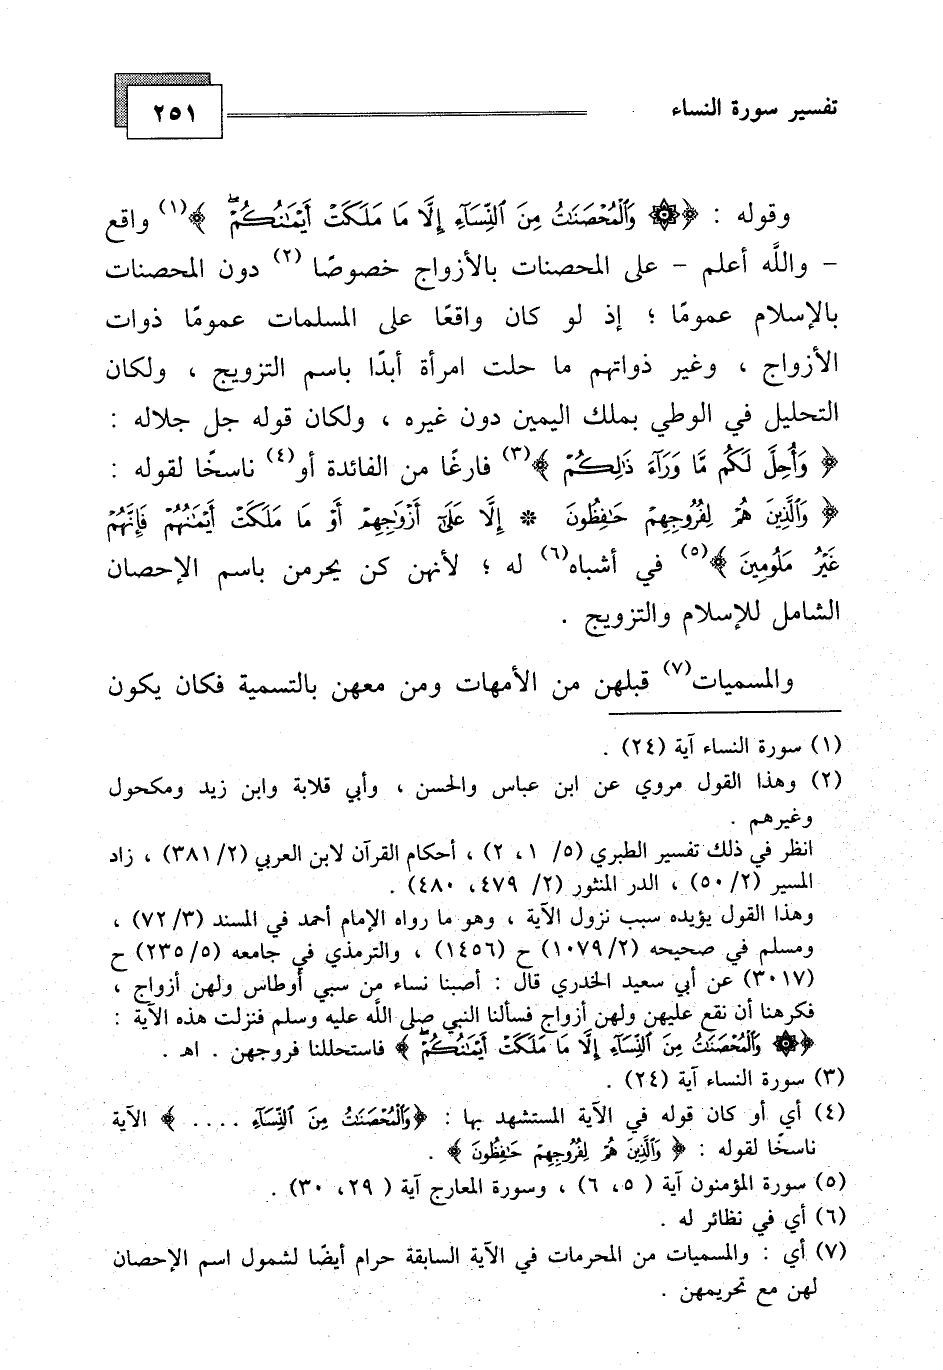 تفسير سورة النساء
٢٥١
وقوله : ﴿۞ وَٱلْمُحْصَنَٰتُ مِنَ ٱلنِّسَآءِ إِلَّا مَا مَلَكَتْ أَيْمَٰنُكُمْ ۖ ﴾(١) واقع
– واللَّه أعلم – على المحصنات بالأزواج خصوصًا (٢) دون المحصنات
بالإسلام عمومًا ؛ إذ لو كان واقعًا على المسلمات عمومًا ذوات
الأزواج ، وغير ذواتهم ما حلت امرأة أبدًا باسم التزويج ، ولكان
التحليل في الوطي بملك اليمين دون غيره ، ولكان قوله جل جلاله :
﴿ وَأُحِلَّ لَكُم مَّا وَرَآءَ ذَٰلِكُمْ ﴾(٣) فارغًا من الفائدة أو(٤) ناسخًا لقوله :
﴿ وَٱلَّذِينَ هُمْ لِفُرُوجِهِمْ حَٰفِظُونَ * إِلَّا عَلَىٰٓ أَزْوَٰجِهِمْ أَوْ مَا مَلَكَتْ أَيْمَٰنُهُمْ فَإِنَّهُمْ
غَيْرُ مَلُومِينَ ﴾(٥) في أشباه(٦) له ؛ لأنهن كن يحرمن باسم الإحصان
الشامل للإسلام والتزويج .
والمسميات(٧) قبلهن من الأمهات ومن معهن بالتسمية فكان يكون
(١) سورة النساء آية (٢٤) .
(٢) وهذا القول مروي عن ابن عباس والحسن ، وأبي قلابة وابن زيد ومكحول
وغيرهم .
انظر في ذلك تفسير الطبري (٥/ ١، ٢) ، أحكام القرآن لابن العربي (٢/ ٣٨١) ، زاد
المسير (٢/ ٥٠) ، الدر المنثور (٢/ ٤٧٩، ٤٨٠) .
وهذا القول يؤيده سبب نزول الآية ، وهو ما رواه الإمام أحمد في المسند (٣/ ٧٢) ،
ومسلم في صحيحه (٢/ ١٠٧٩) ح (١٤٥٦) ، والترمذي في جامعه (٥/ ٢٣٥) ح
(٣٠١٧) عن أبي سعيد الخدري قال : أصبنا نساء من سبي أوطاس ولهن أزواج ،
فكرهنا أن نقع عليهن ولهن أزواج فسألنا النبي صلى اللَّه عليه وسلم فنزلت هذه الآية :
﴿۞ وَٱلْمُحْصَنَٰتُ مِنَ ٱلنِّسَآءِ إِلَّا مَا مَلَكَتْ أَيْمَٰنُكُمْ ۖ ﴾ فاستحللنا فروجهن . اهـ .
(٣) سورة النساء آية (٢٤) .
(٤) أي أو كان قوله في الآية المستشهد بها : ﴿وَٱلْمُحْصَنَٰتُ مِنَ ٱلنِّسَآءِ .... ﴾ الآية
ناسخًا لقوله : ﴿ وَٱلَّذِينَ هُمْ لِفُرُوجِهِمْ حَٰفِظُونَ ﴾ .
(٥) سورة المؤمنون آية ( ٥، ٦) ، وسورة المعارج آية ( ٢٩، ٣٠) .
(٦) أي في نظائر له .
(٧) أي : والمسميات من المحرمات في الآية السابقة حرام أيضًا لشمول اسم الإحصان
لهن مع تحريمهن .